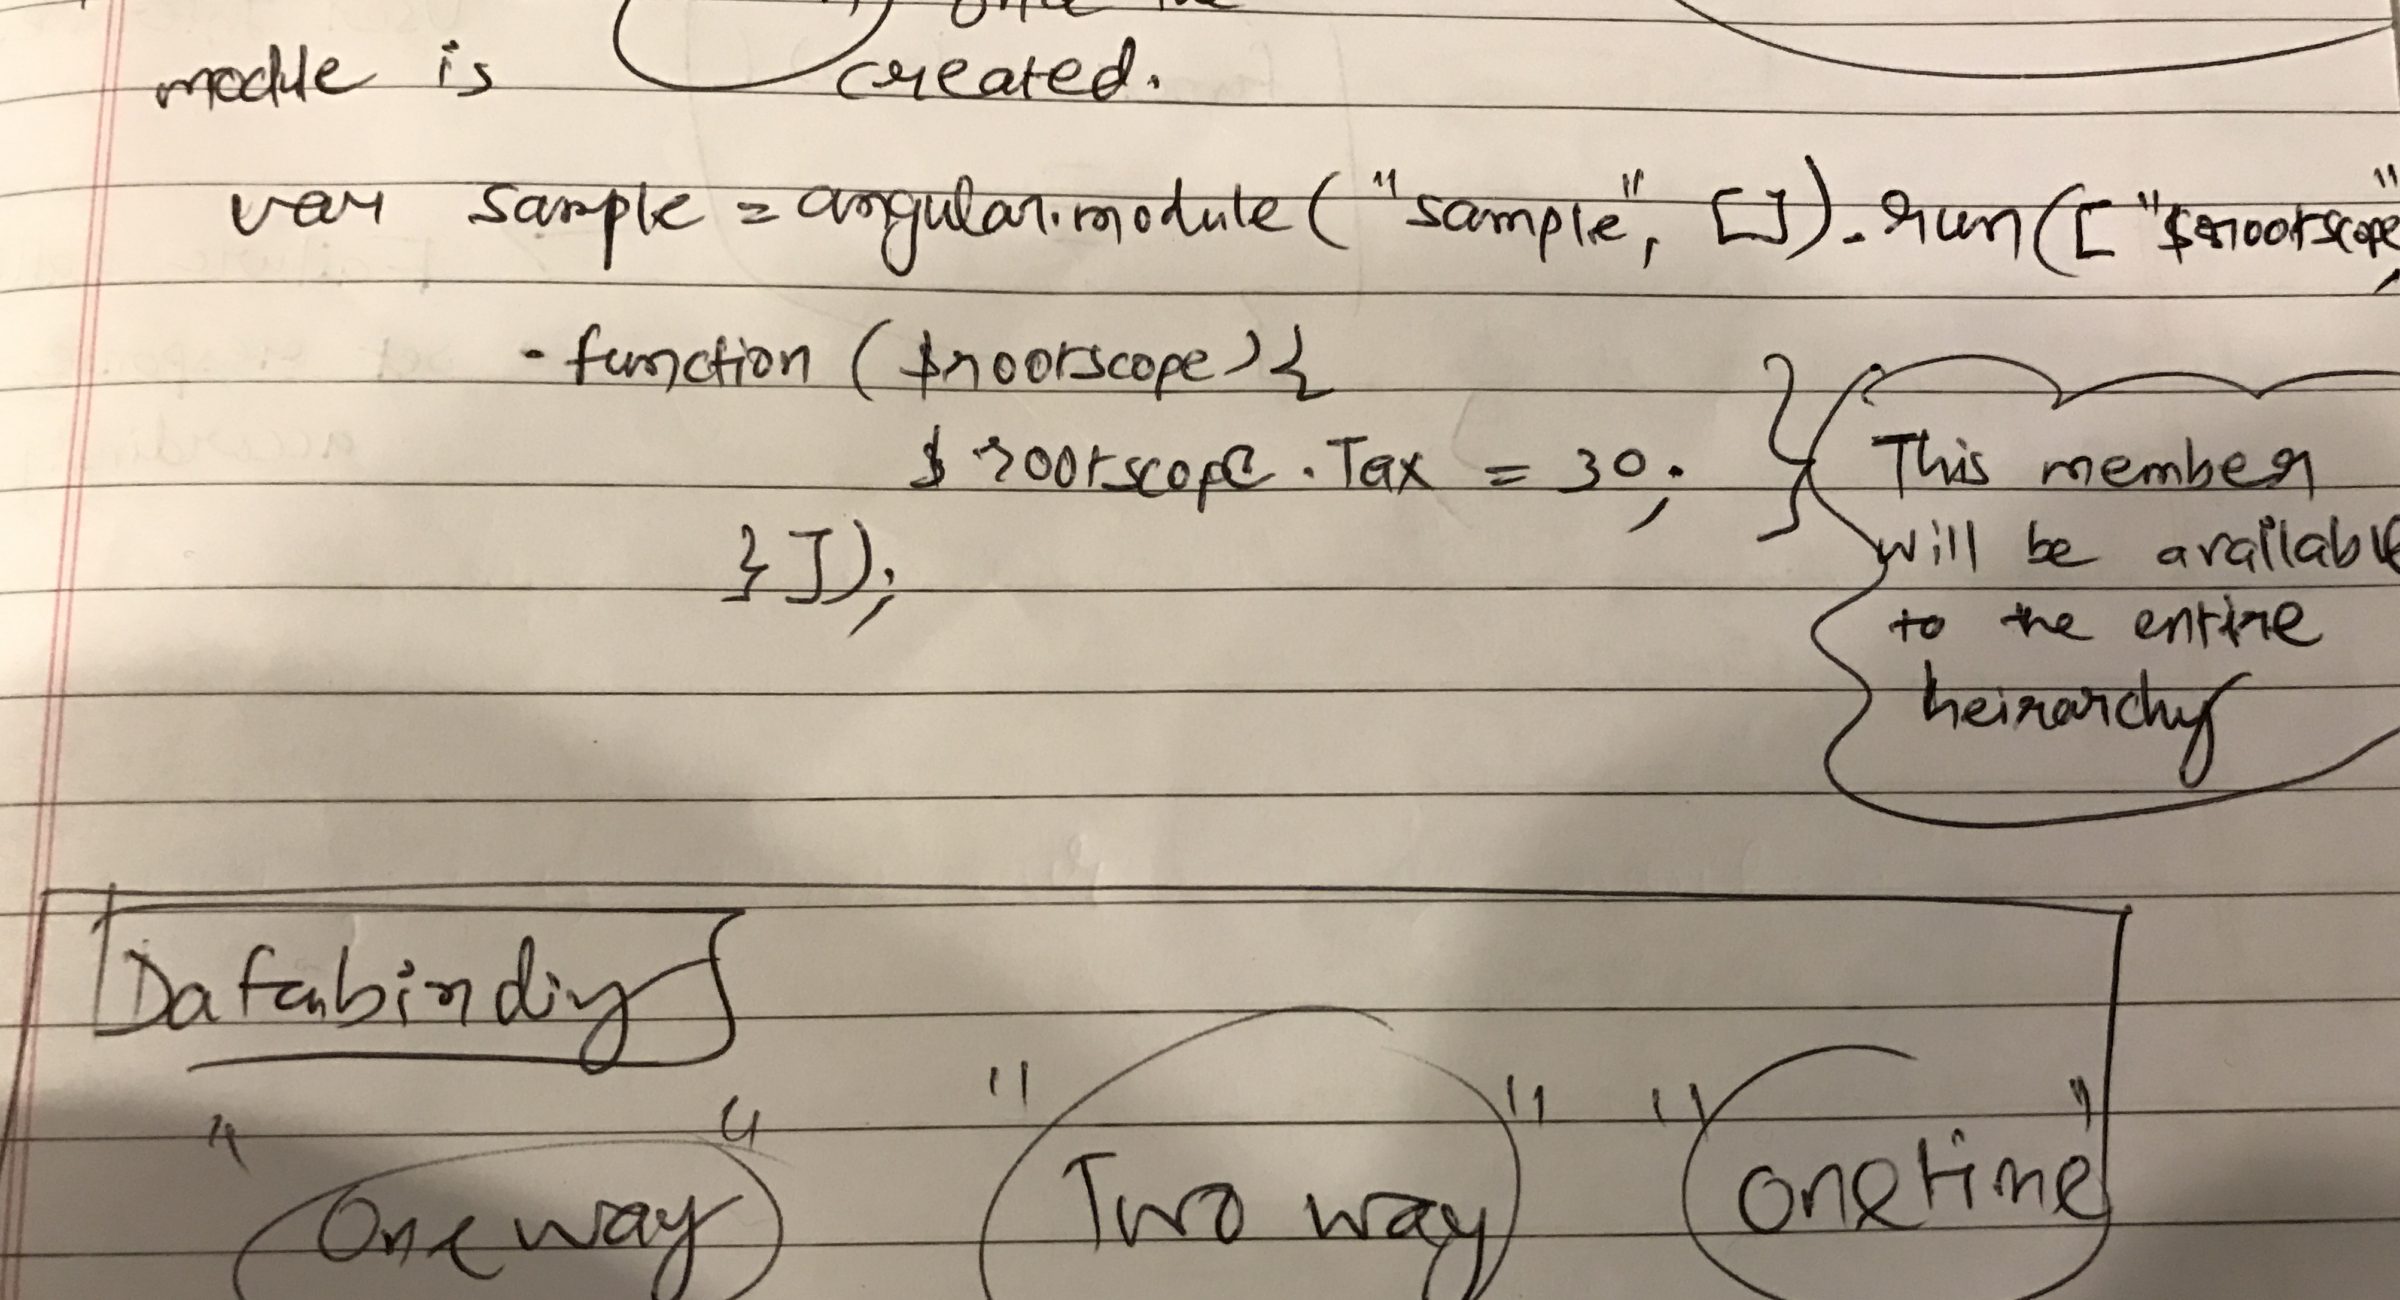 module is created.
var sample = angular.module("sample", []).run(["$rootscope",
function ($rootscope) {
$rootscope.Tax = 30;
}]);
This member
will be available
to the entire
heirarchy
Databinding
"One way" "Two way" "onetime"